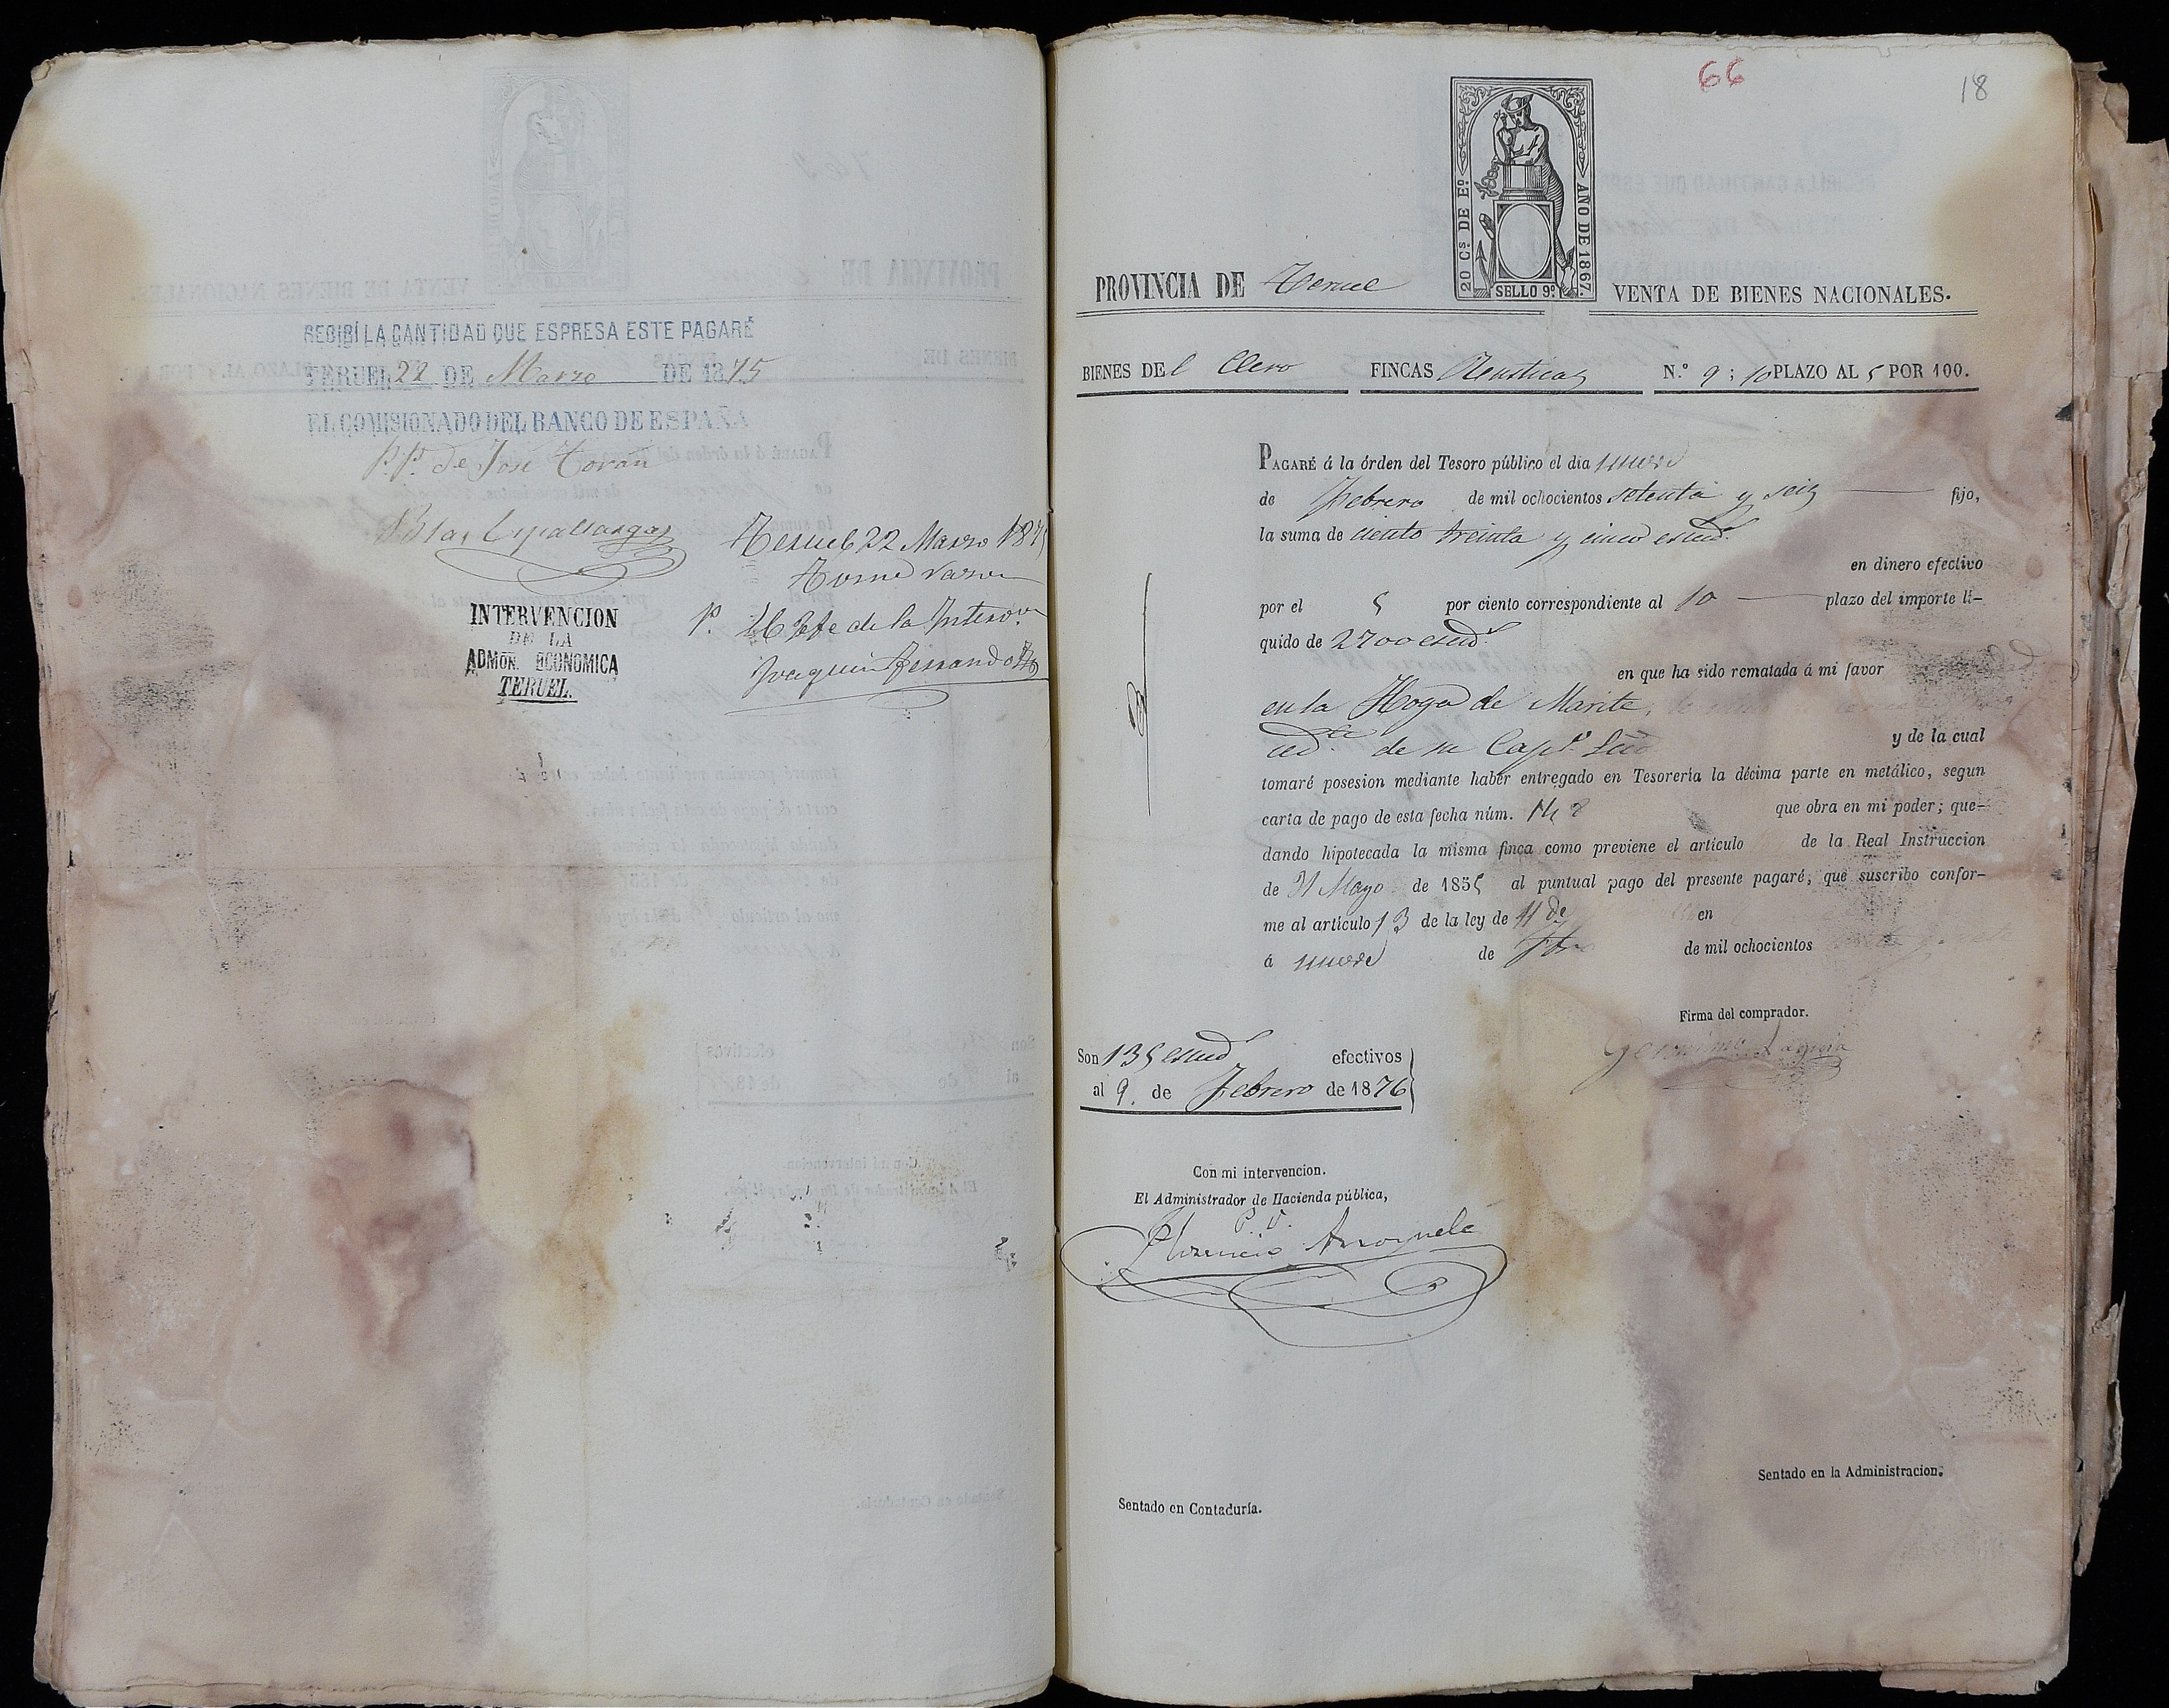 RECIBÍ LA CANTIDAD QUE ESPRESA ESTE PAGARÉ
TERUEL 22 DE Marzo DE 1875
EL COMISIONADO DEL BANCO DE ESPAÑA
P.P. de José Toran
Blas
Teruel 22 Marzo 1875
INTERVENCION
DE LA
ADMON. ECONOMICA
TERUEL.
P. El Jefe de la Interv.on
Joaquin Ferrando
66
18
20 Cs. DE Eº.
AÑO DE 1867.
SELLO 9º.
PROVINCIA DE Teruel
VENTA DE BIENES NACIONALES.
BIENES DEl Clero FINCAS Rusticas N.º 9; 10 PLAZO AL 5 POR 100.
PAGARÉ á la órden del Tesoro público el dia nueve
de Febrero de mil ochocientos setenta y seis fijo,
la suma de ciento treinta y cinco escud.s
en dinero efectivo
por el 5 por ciento correspondiente al 10 plazo del importe lí-
quido de 2700 escud.s
en que ha sido rematada á mi favor
en la Hoya de
de su Cap.
y de la cual
tomaré posesion mediante haber entregado en Tesorería la décima parte en metálico, segun
carta de pago de esta fecha núm. 148 que obra en mi poder; que-
dando hipotecada la misma finca como previene el artículo de la Real Instruccion
de 31 Mayo de 1855 al puntual pago del presente pagaré, que suscribo confor-
me al artículo 13 de la ley de 11 de en
á nueve de de mil ochocientos
Firma del comprador.
Son 135 escud.s efectivos
al 9. de Febrero de 1876
Con mi intervencion.
El Administrador de Hacienda pública,
Sentado en la Administracion.
Sentado en Contaduría.